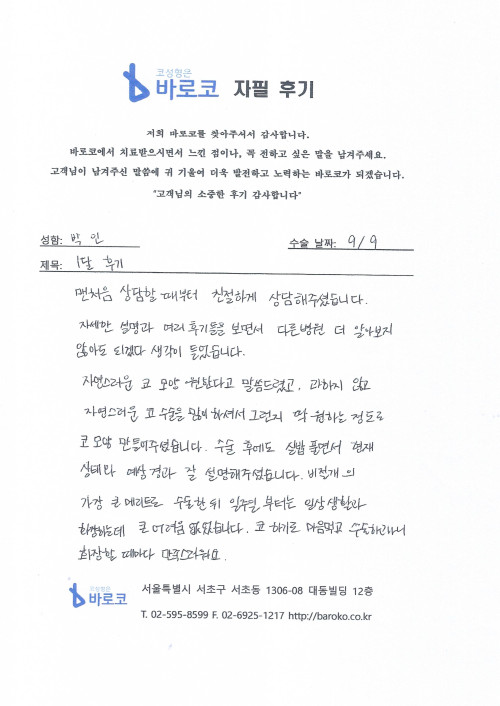 코성형은
바로코 자필 후기
저희 바로코를 찾아주셔서 감사합니다.
바로코에서 치료받으시면서 느낀 점이나, 꼭 전하고 싶은 말을 남겨주세요.
고객님이 남겨주신 말씀에 귀 기울여 더욱 발전하고 노력하는 바로코가 되겠습니다.
"고객님의 소중한 후기 감사합니다"
성함: 박 인 수술 날짜: 9/9
제목: 1달 후기
맨처음 상담할 때부터 친절하게 상담해주셨습니다.
자세한 설명과 여러 후기들을 보면서 다른병원 더 알아보지
않아도 되겠다 생각이 들었습니다.
자연스러운 코 모양 원한다고 말씀드렸고, 과하지 않고
자연스러운 코 수술을 많이 하셔서 그런지 딱 원하는 정도로
코 모양 만들어주셨습니다. 수술 후에도 실밥 풀면서 현재
상태와 예상 경과 잘 설명해주셨습니다. 비절개의
가장 큰 메리트로 수술한 뒤 일주일 부터는 일상생활과
화장하는데 큰 어려움 없었습니다. 코 하기로 마음먹고 수술하고나서
화장할 때마다 만족스러워요.
코성형은
바로코 서울특별시 서초구 서초동 1306-08 대동빌딩 12층
T. 02-595-8599 F. 02-6925-1217 http://baroko.co.kr